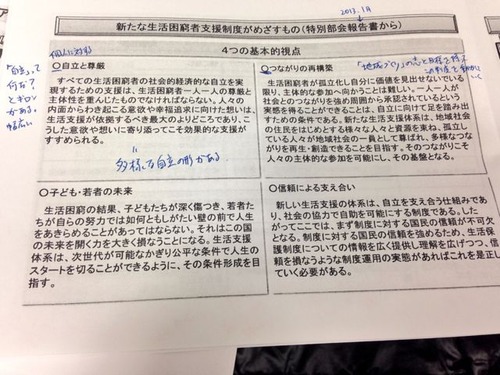 2013.1月
新たな生活困窮者支援制度がめざすもの(特別部会報告書から)
4つの基本的視点
○自立と尊厳
すべての生活困窮者の社会的経済的な自立を実
現するための支援は、生活困窮者一人一人の尊厳と
主体性を重んじたものでなければならない。人々の
内面からわき起こる意欲や幸福追求に向けた想いは、
生活支援が依拠するべき最大のよりどころであり、こ
うした意欲や想いに寄り添ってこそ効果的な支援が
すすめられる。
多様な自立の形がある
「自立」って
何な?
とギロン
がある。
幅広い
○つながりの再構築
生活困窮者が孤立化し自分に価値を見出せないでいる
限り、主体的な参加へ向かうことは難しい。一人一人が
社会とのつながりを強め周囲から承認されているという
実感を得ることができることは、自立に向けて足を踏み出
すための条件である。新たな生活支援体系は、地域社会
の住民をはじめとする様々な人々と資源を束ね、孤立し
ている人々が地域社会の一員として尊ばれ、多様なつな
がりを再生・創造できることを目指す。そのつながりこそ
人々の主体的な参加を可能にし、その基盤となる。
○子ども・若者の未来
生活困窮の結果、子どもたちが深く傷つき、若者た
ちが自らの努力では如何ともしがたい壁の前で人生
をあきらめることがあってはならない。それはこの国
の未来を開く力を大きく損なうことになる。生活支援
体系は、次世代が可能なかぎり公平な条件で人生の
スタートを切ることができるように、その条件形成を目
指す。
○信頼による支え合い
新しい生活支援の体系は、自立を支え合う仕組みであ
り、社会の協力で自助を可能にする制度である。した
がってここでは、まず制度に対する国民の信頼が不可欠
となる。制度に対する国民の信頼を強めるため、生活保
護制度についての情報を広く提供し理解を広げつつ、信
頼を損なうような制度運用の実態があればこれを是正し
ていく必要がある。